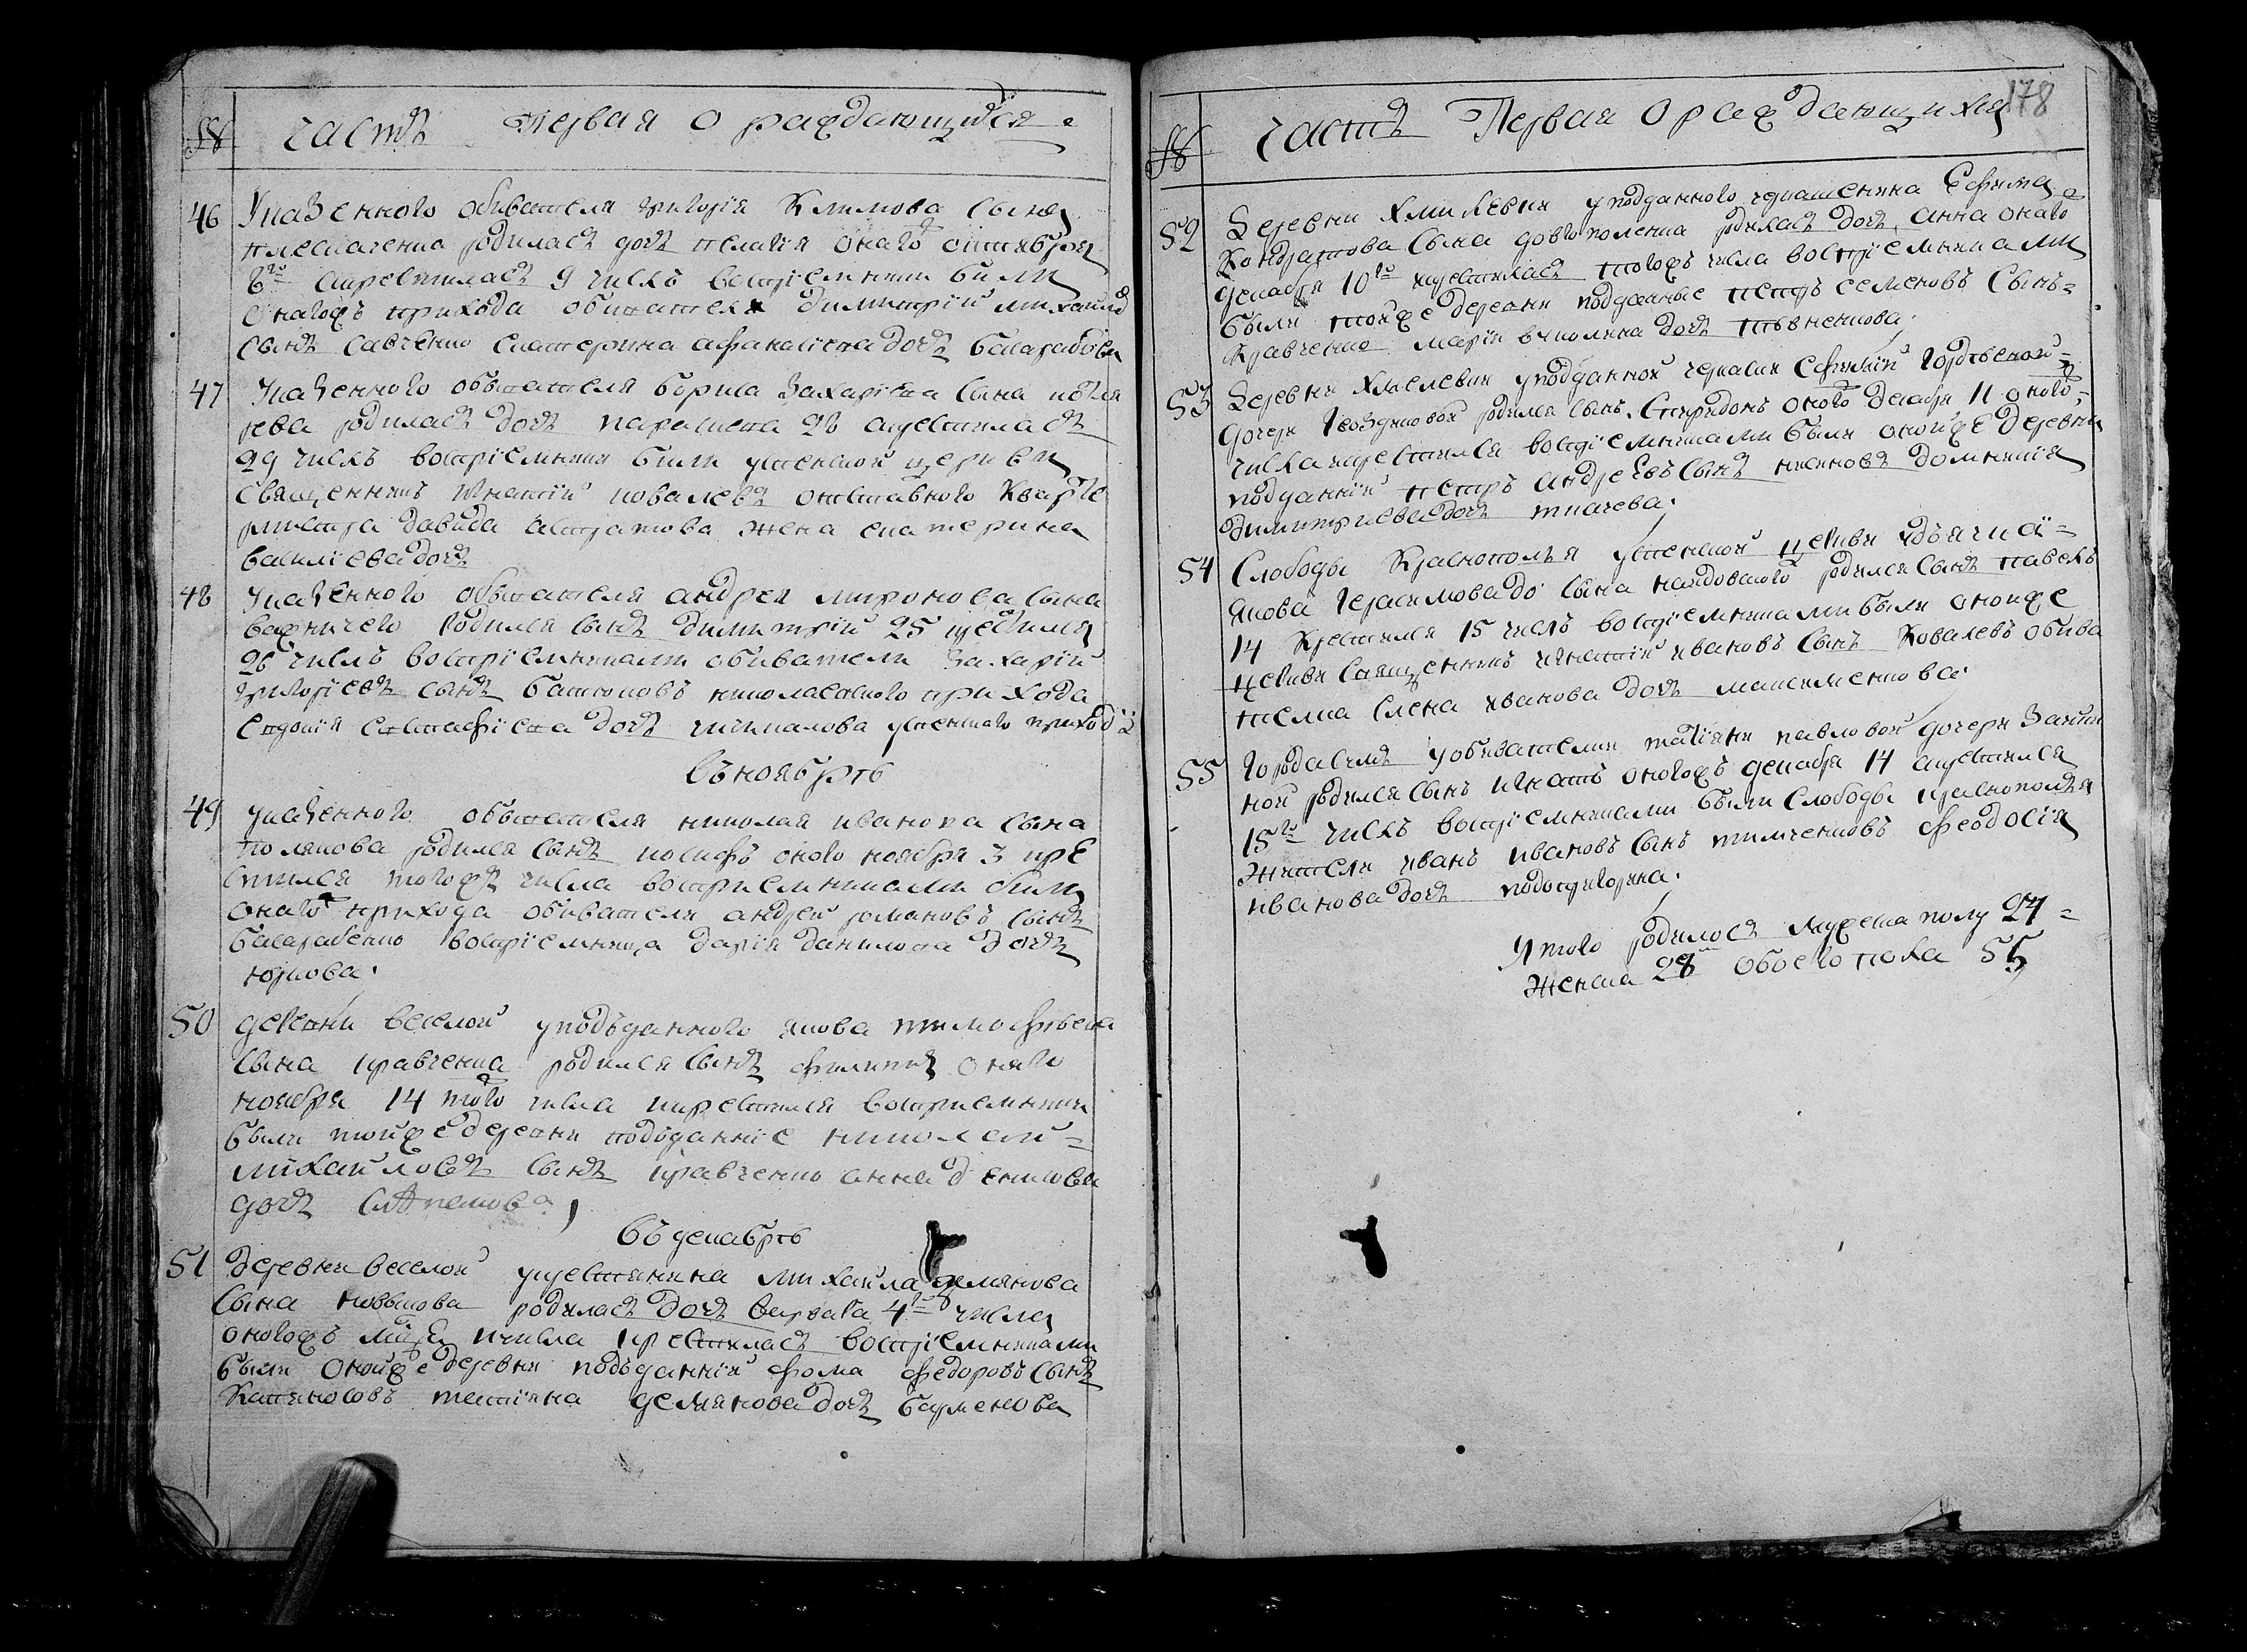 № часть Первая о раждающихся
46 У казенного обивателя григорія Климова сына
родилась дочь пелагія оного октября
8го акрестилась 9 числъ воспріемники били
оногожъ прихода обивателя димитрій михаиловъ
сынъ савченко екатерина афанасіева дочь
47 У казенного обивателя бориса Захаріева сына
рева родилась дочь параскева 28 акрестилась
29 числъ воспріемники били успенской церкви
священникъ игнатій ковалевъ отставного кварте
рмистра давида жена екатерина
василіева дочь
48 У казенного обивателя андрея миронова сына
важничего родился сынъ димитрій 25 крестился
26 числъ воспріемниками обиватели захарій
григоріевъ сынъ николаевского прихода
евдокія евстафіева дочь успенского прихода
въ ноябрѣ
49 у казенного обивателя николая иванова сына
полякова родился сынъ иосифъ оного ноября 3 кре
стился тогожъ числа восприемниками били
оного прихода обивателя андрей романовъ сынъ
воспріемница дарія данилова дочь
юркова.
50 деревни веселой уподъданного якова тимофѣева
сына кравченка родился сынъ филипъ оного
ноября 14 того числа икрестился восприемники
были тойже деревни подъданніе николай
михайловъ сынъ кравченко анна
дочь
въ декабрѣ
51 деревни веселой укрестянина михайла демянова
сына новыкова родилась дочь варвара 4го числа
оногожъ мца ичисла крестилась воспріемниками
были оной же деревни подъданній фома федоровъ сынъ
татіяна демянова дочь
178
№ часть Первая о раждающихся
52 Деревни Хмилевки уподданного черкашенина Ефима
Кондратова сына довгополенка родилась дочь анна оного
декабря 10го икрестилась тогожъ числа воспріемниками
были тойже деревни подданные петръ семеновъ сынъ
Кравченко марія дочь
53 Деревни Хмелевки уподданной ефимій гордѣевой
дочери Гвоздиковой родился сынъ Спиридонъ оного декабря 11 оного
числа крестился воспріемниками были оной же деревни
подданній петръ андрѣевъ сынъ домникія
димитриева дочь ткачева.
54 Слободы Краснополья успенской церкви дьячка
якова Герасимова сына родился сынъ павелъ
14 крестился 15 числъ воспріемниками были оной же
церкви священникъ игнатій ивановъ сынъ Ковалевъ обива
телка елена иванова дочь максименкова.
55 уобивателки татіяни павловой дочери
ной родился сынъ игнатъ оногожъ декабря 14 акрестился
15го числъ воспріемниками были слободы краснополья
жители иванъ ивановъ сынъ тимченковъ феодосія
иванова дочь подопригорина.
Итого родилось мужеска полу 27
женска 28 обоего пола 55